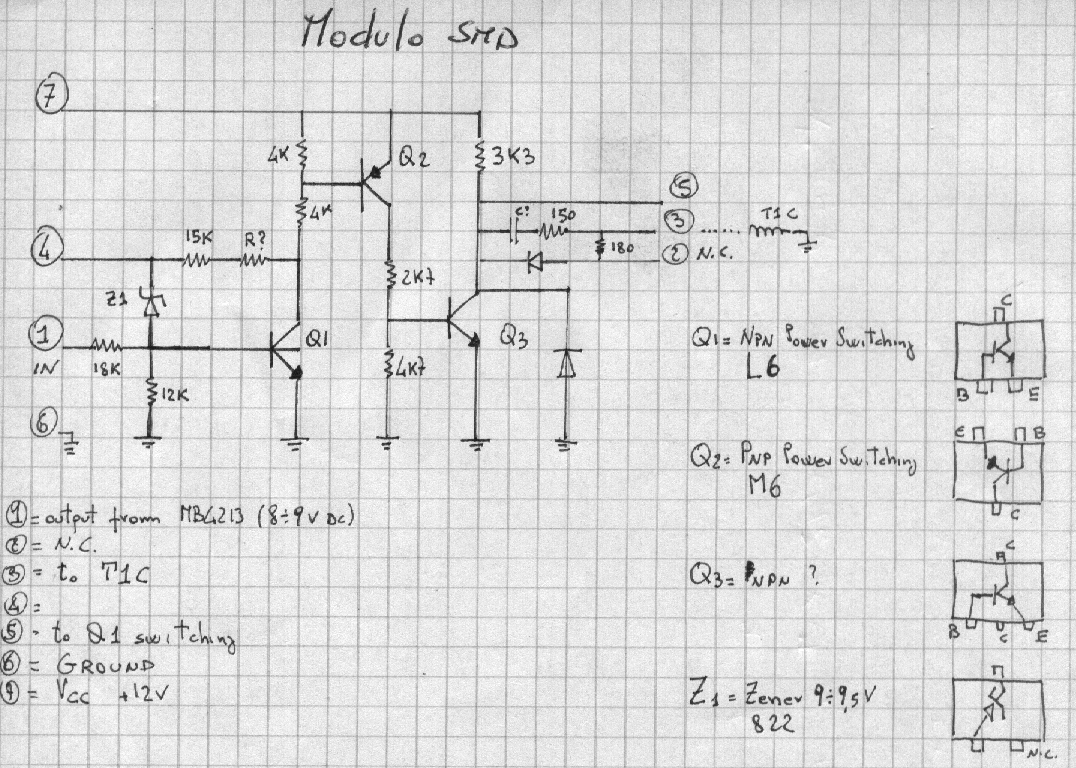 Modulo SMD
7
4K
Q2
3K3
5
C?
150
3
T1C
4K
15K
R?
180
2 N.C.
4
Z1
2K7
1
IN
18K
Q1
Q3
12K
4K7
6
Q1= NPN Power Switching
L6
C
B
E
Q2= PNP Power Switching
M6
E
B
C
Q3= NPN ?
C
B
C
E
Z1= Zener 9÷9,5V
822
N.C.
1 = output from MB4213 (8÷9V DC)
2 = N.C.
3 = to T1C
4 =
5 = to Q1 switching
6 = GROUND
7 = Vcc +12V